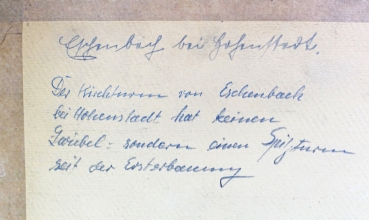 Eschenbach bei Hohenstadt.
Der Kirchturm von Eschenbach
bei Hohenstadt hat keinen
Zwiebel- sondern einen Spitzturm
seit der Ersterbauung